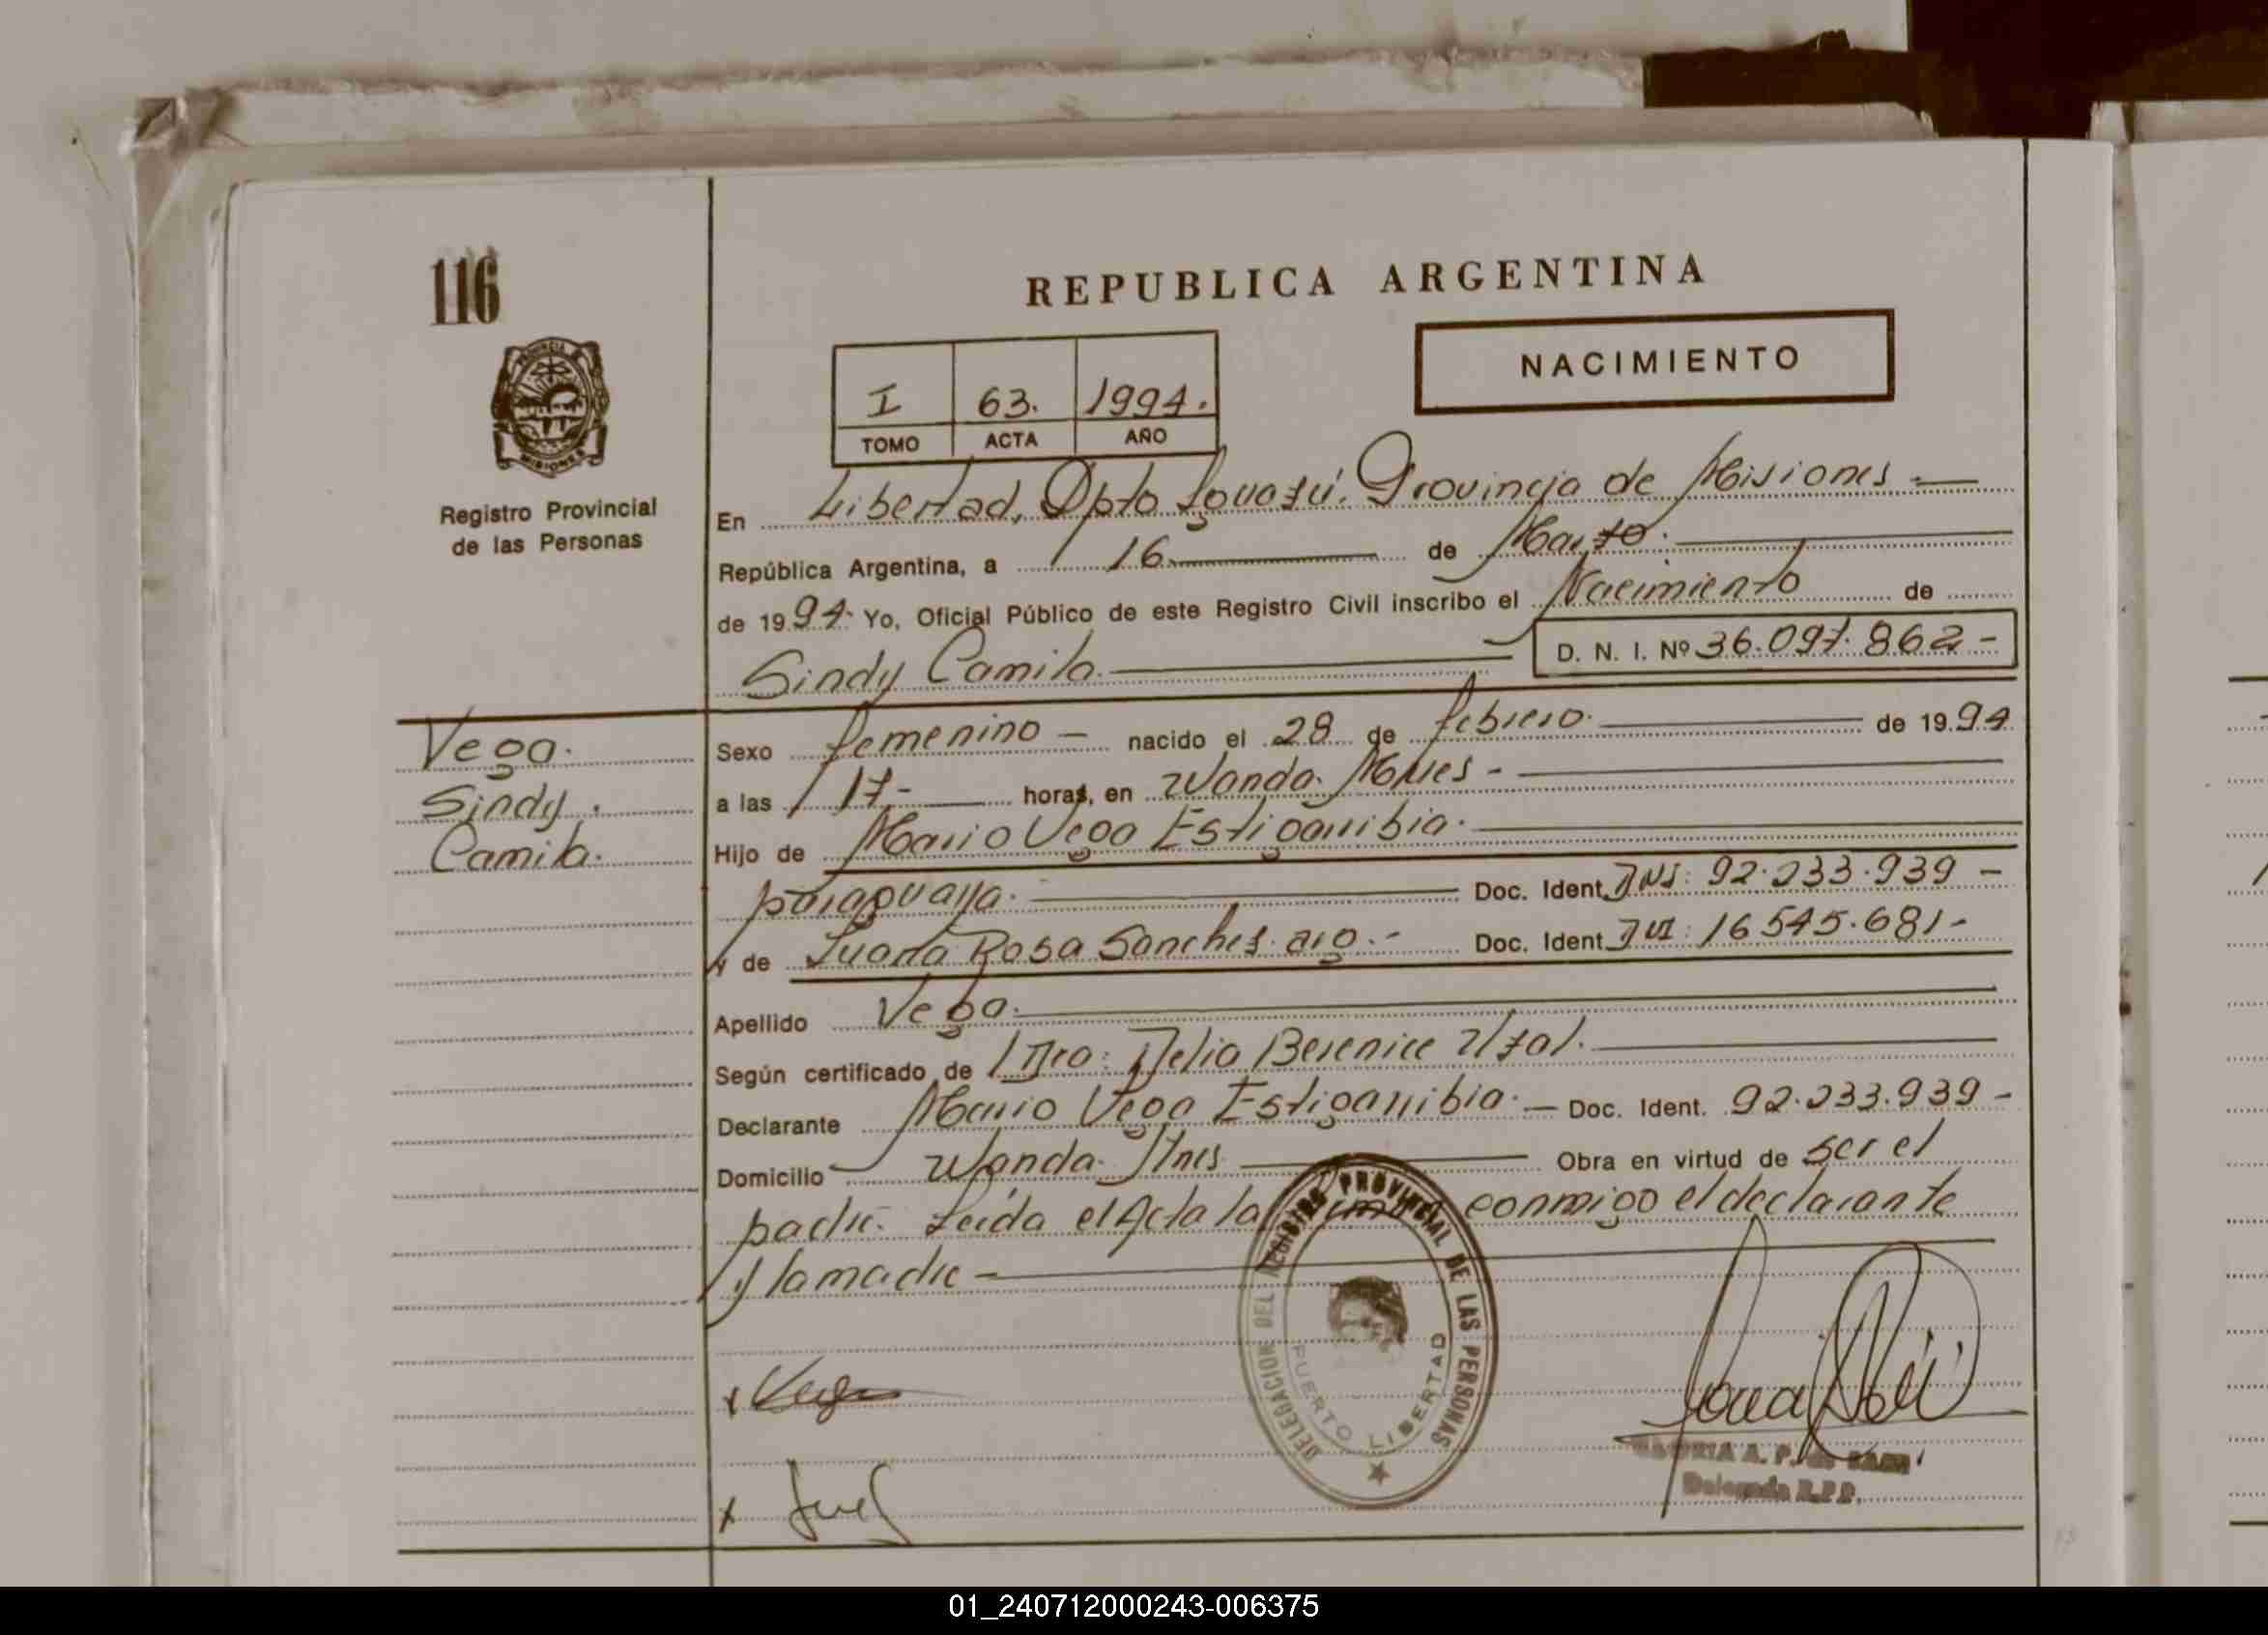 116
REPUBLICA ARGENTINA
NACIMIENTO
I 63. 1994.
TOMO ACTA AÑO
PROVINCIA DE
MISIONES
Registro Provincial
de las Personas
En Libertad, Dpto Iguazú. Provincia de Misiones -
República Argentina, a 16 de Marzo.
de 1994 Yo, Oficial Público de este Registro Civil inscribo el Nacimiento de
Sindy Camila. D. N. I. Nº 36.097.862-
Vega.
Sindy.
Camila.
Sexo femenino - nacido el 28 de febrero. de 1994
a las 17- horas, en Wanda.
Hijo de Mario Vega Estigarribia.
paraguaya. Doc. Ident. 92.233.939 -
y de Juana Rosa Sanches. arg. - Doc. Ident. 16545.681-
Apellido Vega.
Según certificado de Dra: Delia Berenice
Declarante Mario Vega Estigarribia. - Doc. Ident. 92.233.939 -
Domicilio Wanda. Mnes Obra en virtud de ser el
padre. Leida el Acta la firman conmigo el declarante
y la madre -
DELEGACION DEL REGISTRO PROVINCIAL DE LAS PERSONAS
PUERTO LIBERTAD
Vega
Delegada R.P.P.
01_240712000243-006375